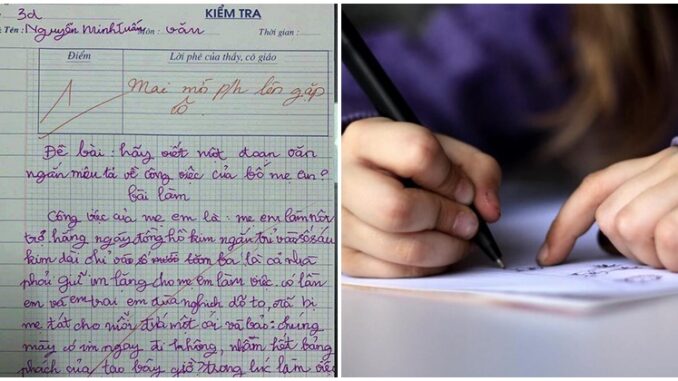 KIỂM TRA
3d
Tên: Nguyễn Minh Tuấn Môn: văn Thời gian:
Điểm Lời phê của thầy, cô giáo
1 Mai mố p/h lên gặp
cô
Đề bài: hãy viết một đoạn văn
ngắn miêu tả về công việc của bố mẹ em?
bài làm
Công việc của mẹ em là: mẹ em làm nội
trợ hằng ngày đồng hồ kim ngắn trỉ vào số sáu
kim dài chỉ vào số ba là cả nhà
phải giữ im lặng cho mẹ em làm việc. có lần
em và em trai em đùa nghịch dỗ to, đã bị
mẹ tát cho mỗi đứa một cái và bảo: chúng
mày có im ngay đi không, nhầm hết bảng
phách của tao bây giờ? trong lúc làm việc